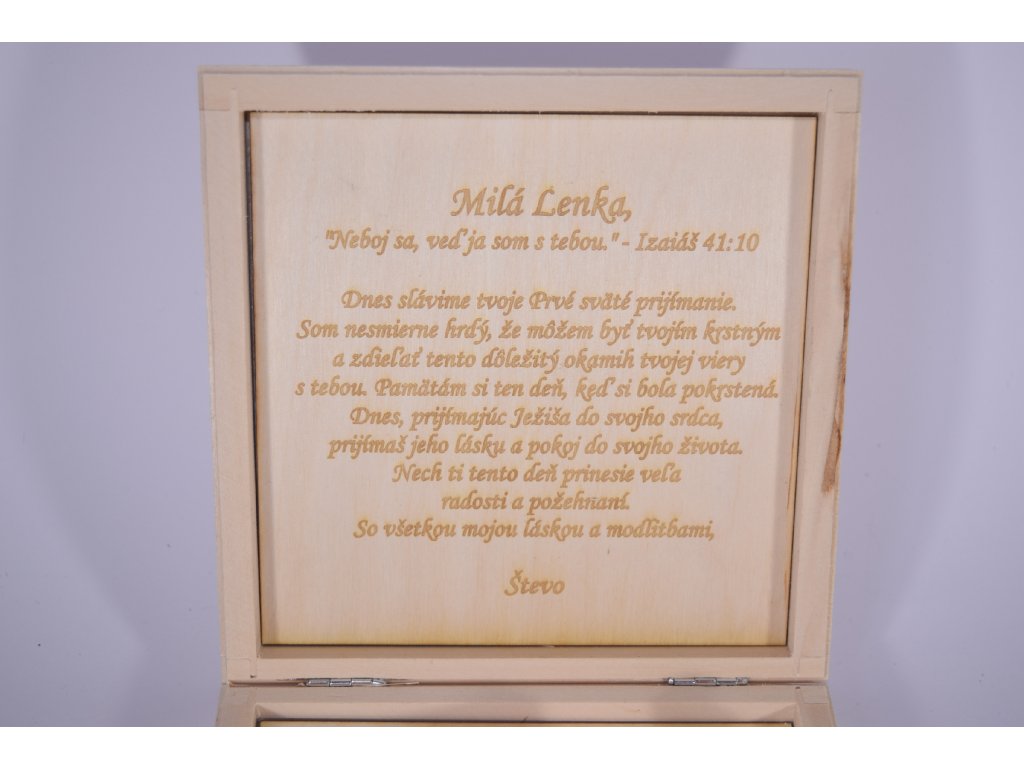 Milá Lenka,
"Neboj sa, veď ja som s tebou." - Izaiáš 41:10
Dnes slávime tvoje Prvé sväté prijímanie.
Som nesmierne hrdý, že môžem byť tvojím krstným
a zdieľať tento dôležitý okamih tvojej viery
s tebou. Pamätám si ten deň, keď si bola pokrstená.
Dnes, prijímajúc Ježiša do svojho srdca,
prijímaš jeho lásku a pokoj do svojho života.
Nech ti tento deň prinesie veľa
radosti a požehnaní.
So všetkou mojou láskou a modlitbami,
Števo